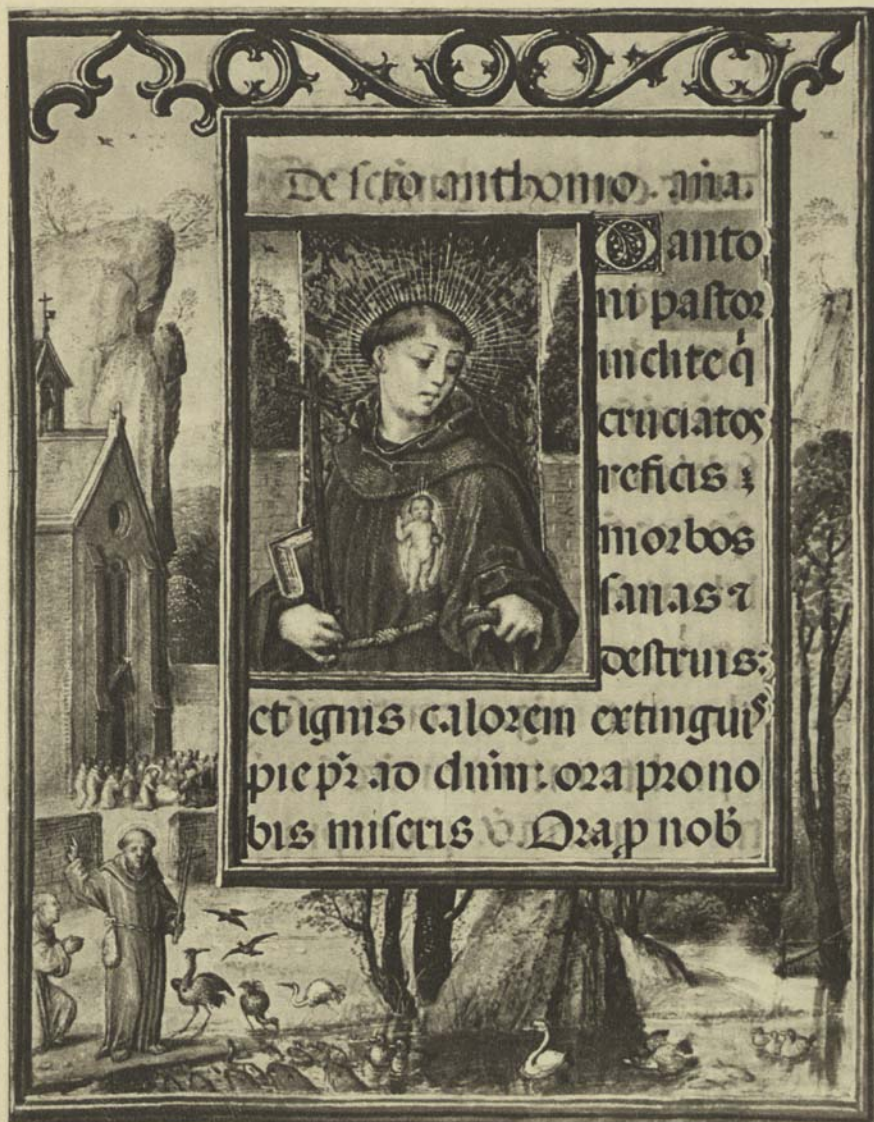 De scto anthonio. aña.
O anto
ni pastor
inclite q̄
cruciatos
reficis ⁊
morbos
sanas ⁊
destruis:
et ignis calorem extinguis
pie pr̄ ad dn̄m: ora pro no
bis miseris v̄ Ora ꝓ nob̄